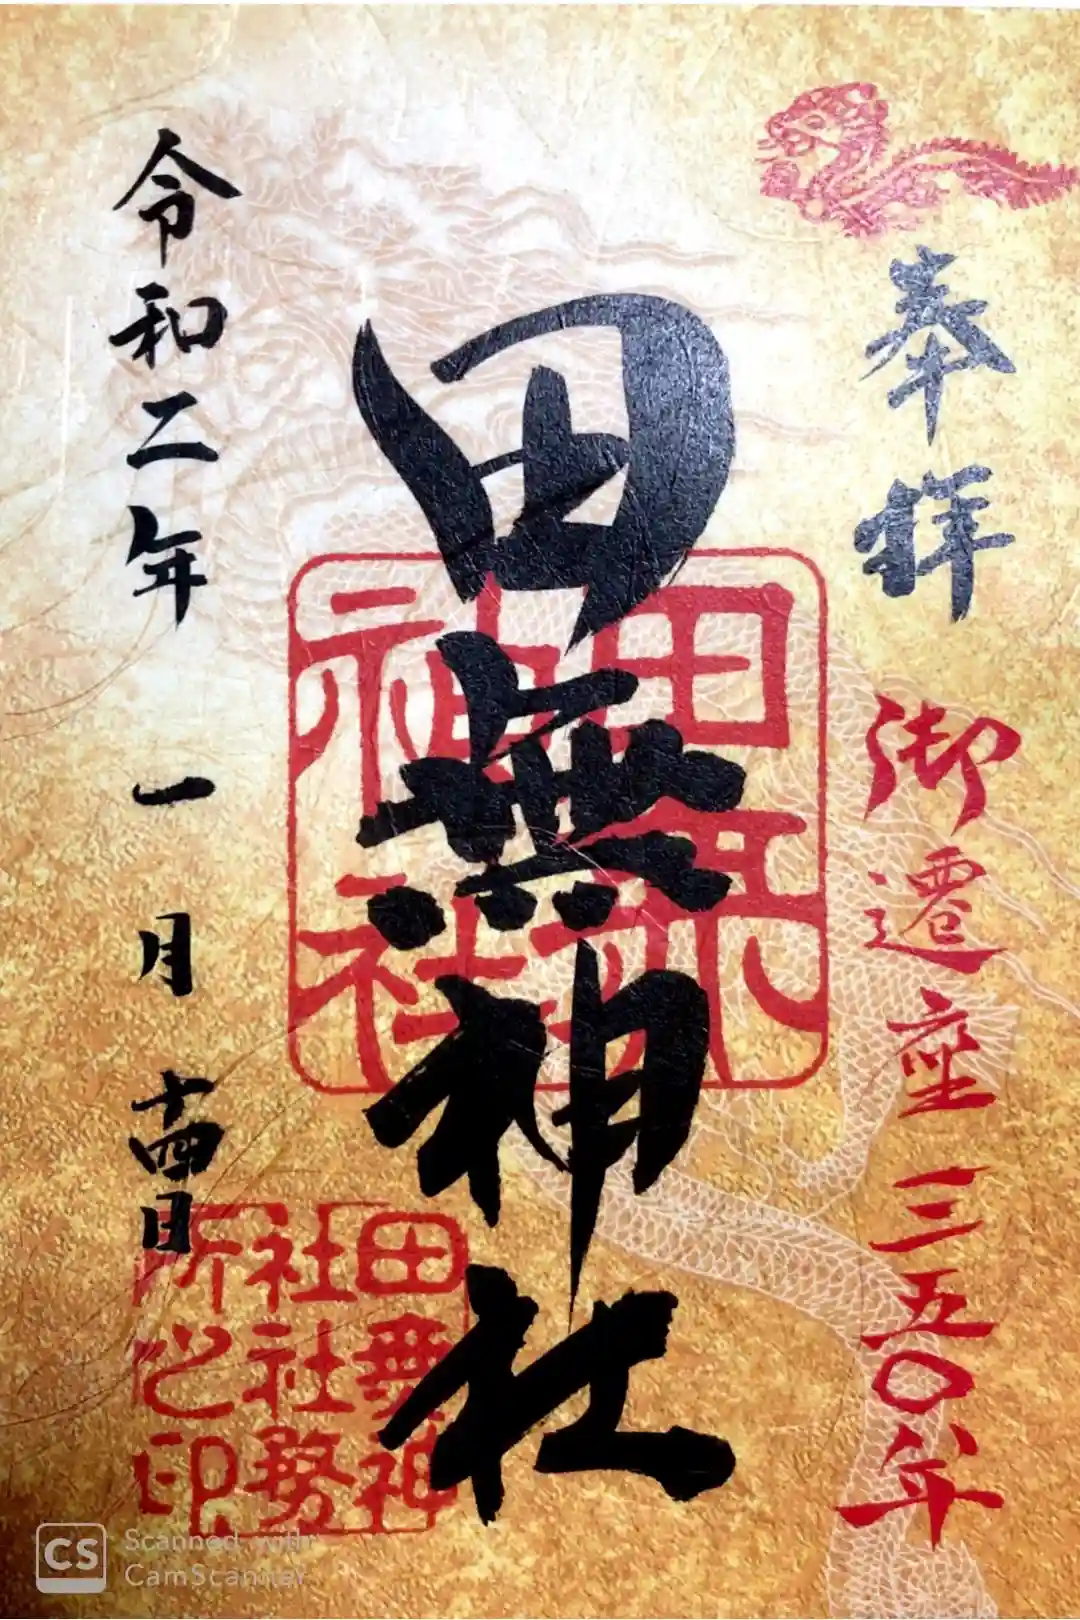 奉拝
御遷座三五〇年
田無神社
令和二年 一月 十四日
田無神社
田無神社社務所之印
CS Scanned with CamScanner